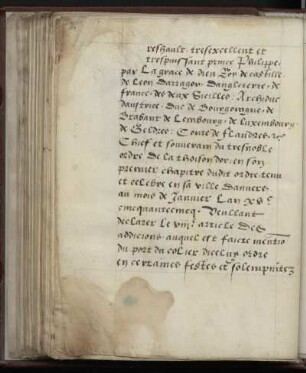 treshault tresexcellent et
trespuissant prince Philippe
par La grace de dieu Roy de castille
de Leon darragon Dangleterre de
france des deux Secilles Archiduc
daustrice Duc de Bourgoingne de
Brabant de Lembourg de Luxembourg
de Geldres Conte de flandres &c
Chief et souverain du tresnoble
ordre de La thoison dor en son
premier chapitre dudit ordre tenu
et celebre en sa ville danvers
au mois de Janvier Lan XVc
cincquantecincq Veullant
declarer le article des
addicions auquel est faicte mention
du port du colier dicelluy ordre
en certaines festes et solempnitez